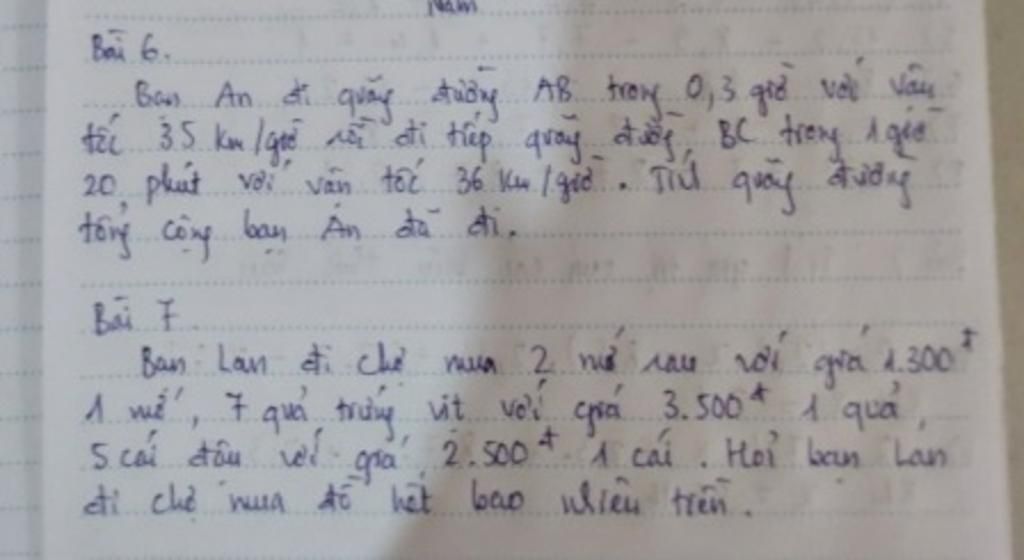 Nam
Bài 6.
Bạn An đi quãng đường AB trong 0,3 giờ với vận
tốc 35 Km/giờ rồi đi tiếp quãng đường BC trong 1 giờ
20 phút với vận tốc 36 Km/giờ. Tính quãng đường
tổng cộng bạn An đã đi.
Bài 7
Bạn Lan đi chợ mua 2 mớ rau với giá 1.300đ
1 mớ, 7 quả trứng vịt với giá 3.500đ 1 quả,
5 cái đậu với giá 2.500đ 1 cái. Hỏi bạn Lan
đi chợ mua đồ hết bao nhiêu tiền.